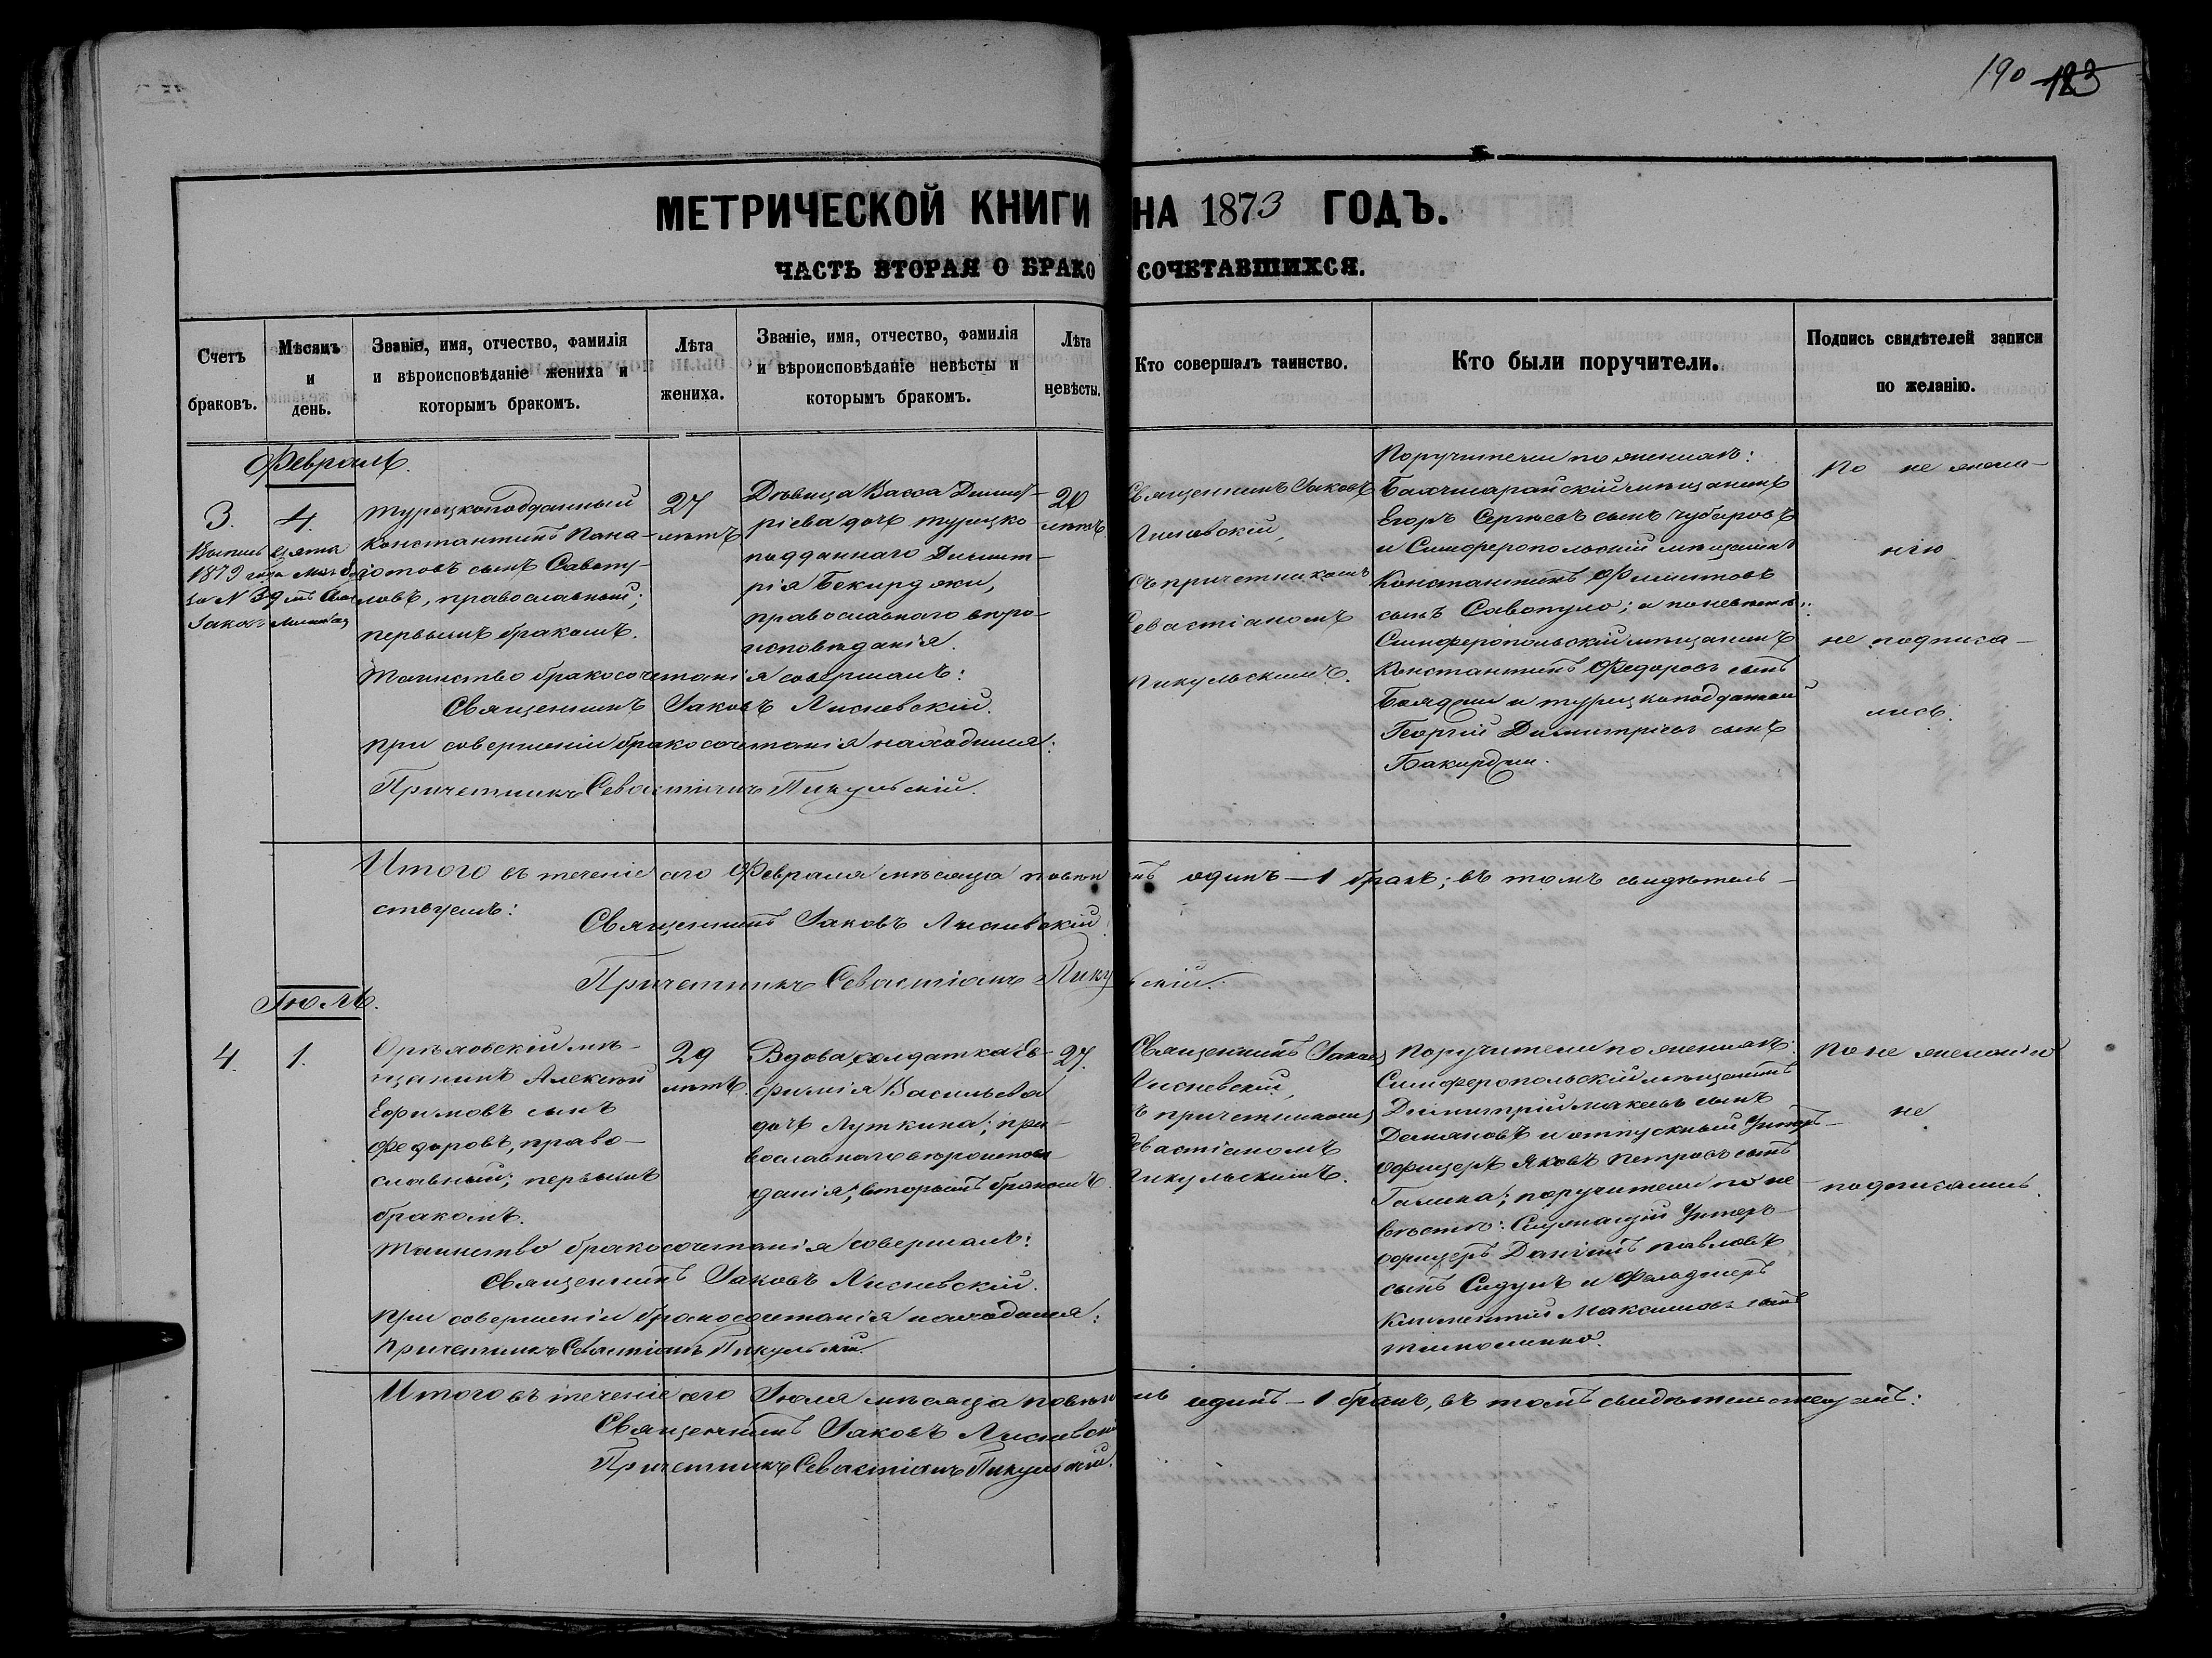 190 123
МЕТРИЧЕСКОЙ КНИГИ НА 1873 ГОДЪ.
ЧАСТЬ ВТОРАЯ О БРАКОСОЧЕТАВШИХСЯ.
Счетъ браковъ.
Мѣсяцъ и день.
Званіе, имя, отчество, фамилія
и вѣроисповѣданіе жениха и
которымъ бракомъ.
Лѣта
жениха.
Званіе, имя, отчество, фамилія
и вѣроисповѣданіе невѣсты и
которымъ бракомъ.
Лѣта
невѣсты.
Кто совершалъ таинство.
Кто были поручители.
Подпись свидѣтелей записи
по желанію.
Февраль.
3.
4.
1879 года
за N 39
Турецкоподданный
Константинъ Пана-
іотовъ сынъ Савопу-
ловъ, православный;
первымъ бракомъ.
27
лѣтъ
Дѣвица Васса Димит-
ріева дочь турецко-
подданнаго Димит-
рія Бекирджи,
православнаго вѣро-
исповѣданія.
20
лѣтъ
Священникъ Іаковъ
Лисневскій,
съ причетникомъ
Севастіаномъ
Пикульскимъ.
Поручители по женихѣ:
Бахчисарайскій мѣщанинъ
Егоръ Сергѣевъ сынъ Чубаровъ
и Симферопольскій мѣщанинъ
Константинъ Филиповъ
сынъ Савопуло; а по невѣстѣ:
Симферопольскій мѣщанинъ
Константинъ Федоровъ сынъ
и турецкоподданный
Георгій Димитріевъ сынъ
Бакирджи.
По не жела-
нію
не подписа-
лись.
Таинство бракосочетанія совершалъ:
Священникъ Іаковъ Лисневскій.
При совершеніи бракосочетанія находился:
Причетникъ Севастіанъ Пикульскій.
Итого въ теченіе сего Февраля мѣсяца повѣнчанъ одинъ - 1 бракъ; въ томъ свидѣтель-
ствуемъ:
Священникъ Іаковъ Лисневскій.
Причетникъ Севастіанъ Пикульскій.
Іюль.
4.
1.
Орѣховскій мѣ-
щанинъ Алексѣй
Ефимовъ сынъ
Федоровъ, право-
славный; первымъ
бракомъ.
29
лѣтъ.
Вдова, солдатка Ев-
фимія Васильева
дочь Луткина; пра-
вославнаго вѣроисповѣ-
данія; вторымъ бракомъ.
27.
Священникъ Іаковъ
Лисневскій,
съ причетникомъ
Севастіаномъ
Пикульскимъ.
Поручители по женихѣ:
Симферопольскій мѣщанинъ
Димитрій сынъ
и отпускный Унтеръ-
офицеръ Яковъ Петровъ сынъ
Галика; поручители по не-
вѣстѣ: Служащій Унтеръ-
офицеръ Даніилъ Павловъ
сынъ Сидунъ и Фельдшеръ
Климентій Максимовъ сынъ
По не желанію
не
подписались.
Таинство бракосочетанія совершалъ:
Священникъ Іаковъ Лисневскій.
При совершеніи бракосочетанія находился:
Причетникъ Севастіанъ Пикульскій.
Итого въ теченіе сего Іюля мѣсяца повѣнчанъ одинъ - 1 бракъ, въ томъ свидѣтельствуемъ:
Священникъ Іаковъ Лисневскій
Причетникъ Севастіанъ Пикульскій.